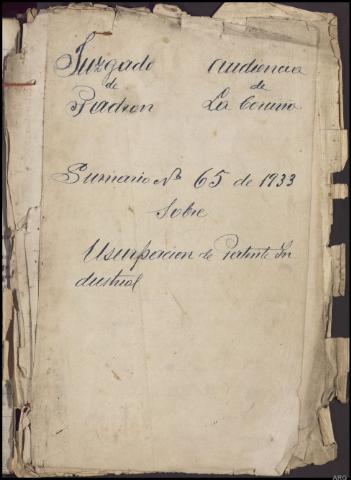 Juzgado
de
Padron
Audiencia
de
La Coruña
Sumario No 65 de 1933
Sobre
Usurpacion de Patente In
dustrial
ARG